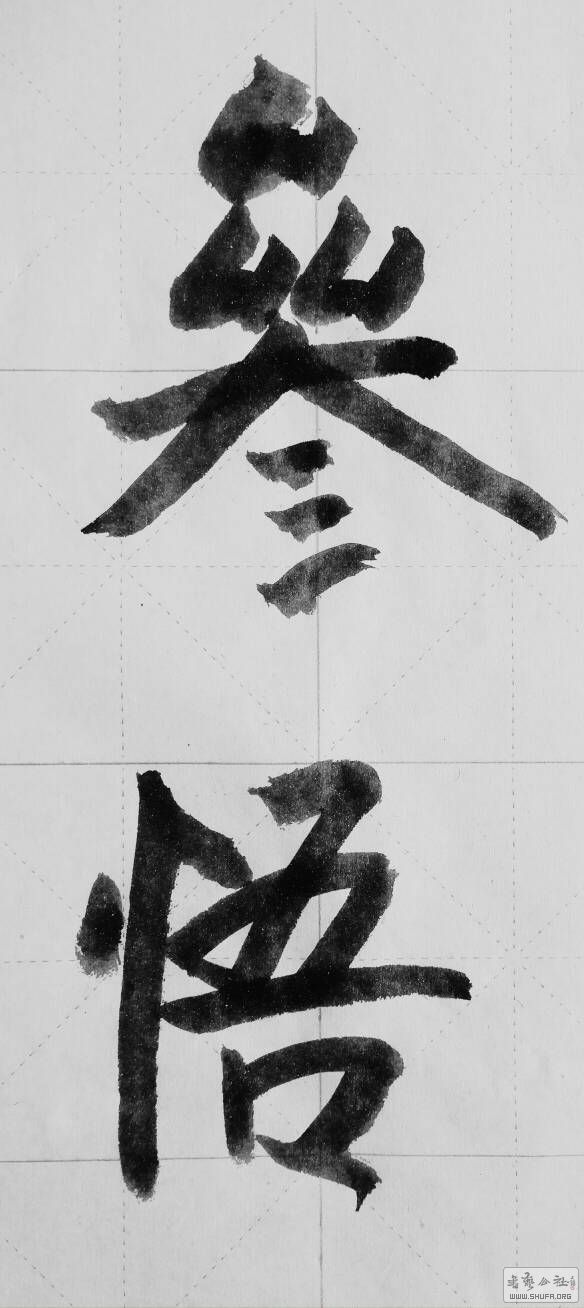 參悟
书艺公社
WWW.SHUFA.ORG